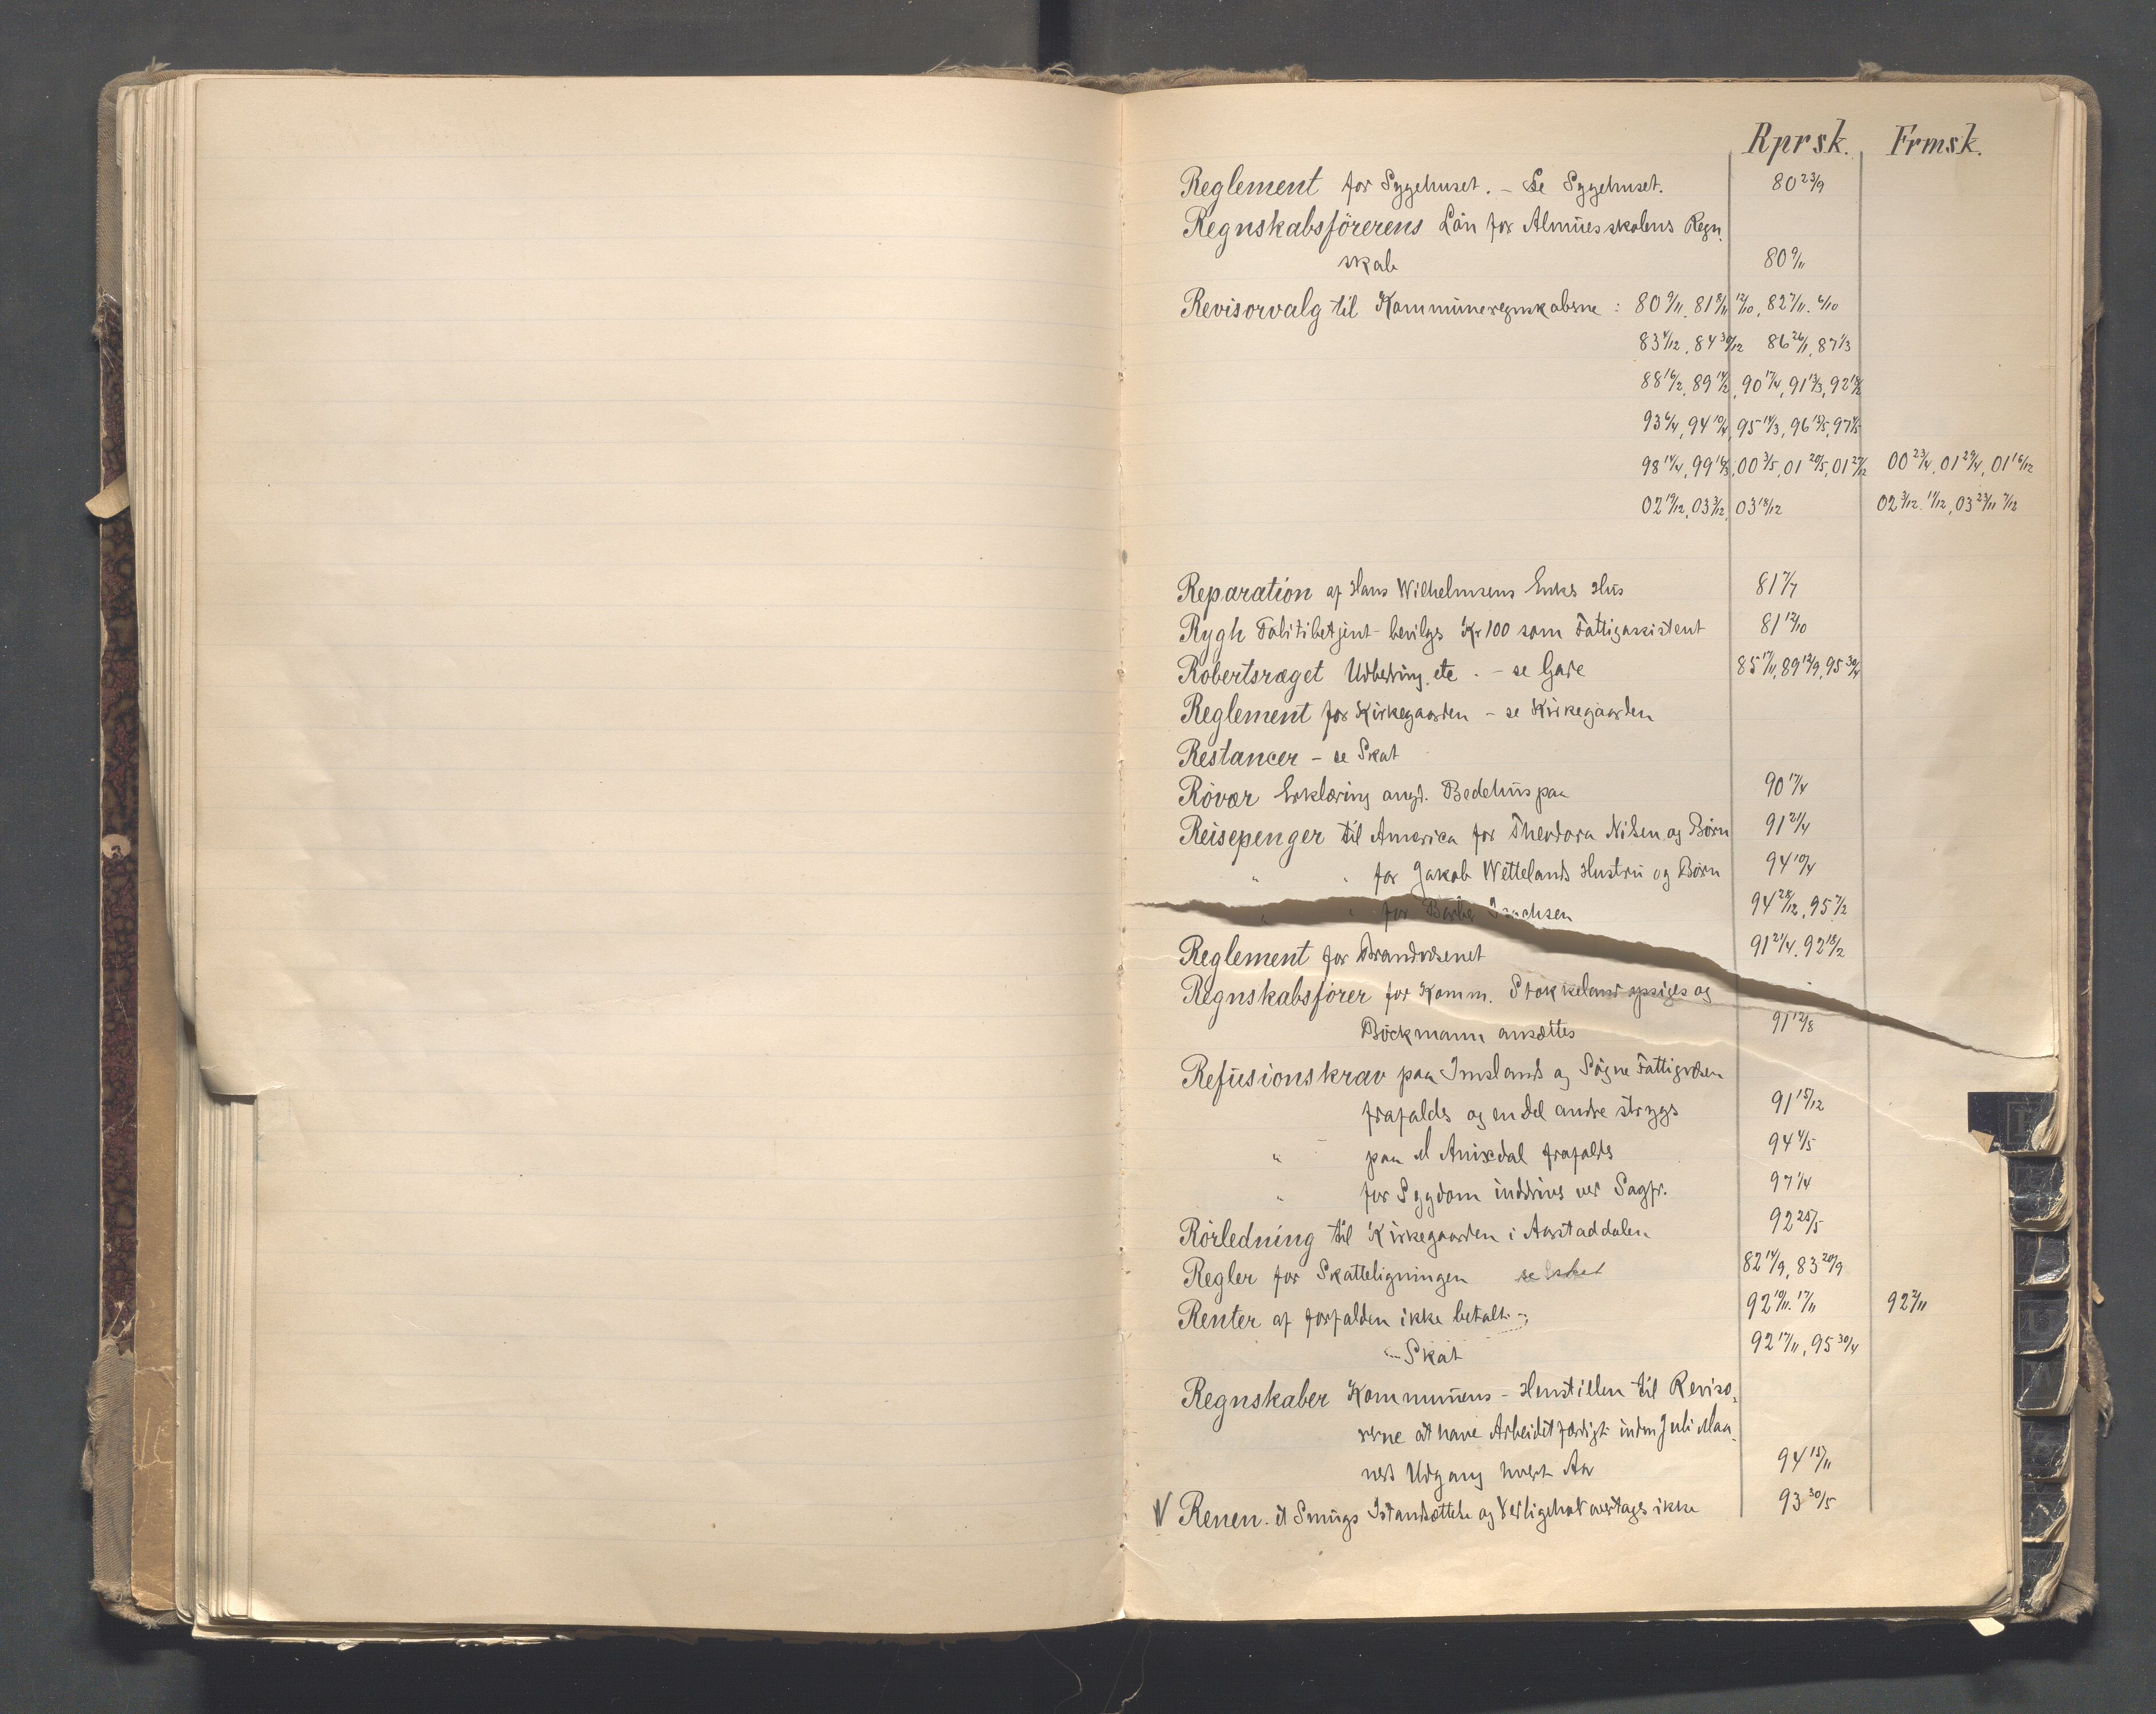 Rprsk. Frmsk.
Reglement for Sygehuset. – Se Sygehuset. 80 23/9
Regnskabsförerens Lön for Almuesskolens Regn-
skab 80 9/11
Revisorvalg til Kommuneregnskaberne : 80 9/11, 81 8/11 12/10, 82 7/11. 6/10
83 4/12, 84 30/12 86 26/1, 87 1/3
88 16/2, 89 14/2, 90 17/4, 91 13/3, 92 18/2
93 6/4, 94 10/4, 95 14/3, 96 15/5, 97 4/5
98 14/4, 99 16/3, 00 3/5, 01 20/5, 01 27/12 00 23/4, 01 29/4, 01 16/12
02 19/12, 03 3/12, 03 18/12 02 3/12 11/12, 03 23/11 7/12
Reparation af Hans Wilhelmsens Enkes Hus 81 7/7
Rygh Politibetjent bevilges Kr 100 som Fattigassistent 81 12/10
Robertsræget Udbedring etc. – se Gade 85 17/11, 89 12/9, 95 30/4
Reglement for Kirkegaarden – se Kirkegaarden
Restancer – se Skat
Rövær Erklæring angd. Bedehus paa 90 17/4
Reisepenger til America for Theodora Nilsen og Börn 91 21/4
" " for Jakob Wettelands Hustru og Börn 94 10/4
" " for Isachsen 94 28/12, 95 7/2
Reglement for Brandvæsenet 91 21/4. 92 18/2
Regnskabsförer for Komm. Stokkeland opsiges og
Böckmann ansættes 91 12/8
Refusionskrav paa Imslands og Sögne Fattigvæsen
frafaldes og en del andre stryges 91 15/12
" paa M Anixdal frafaldes 94 4/5
" for Sygdom inddrives ved Sagfr. 97 1/4
Rörledning til Kirkegaarden i Aarstaddalen 92 25/5
Regler for Skatteligningen se skat 82 14/9, 83 20/9
Renter af forfalden ikke betalt 92 10/11. 17/11 92 2/11
Skat 92 17/11, 95 30/4
Regnskaber Kommunens – Henstillen til Reviso-
rerne at have Arbeidet færdigt inden Juli Maa-
neds Udgang hvert Aar 94 15/11
V Renen. et Smugs Istandsættelse og Vedligehold overtages ikke 93 30/5